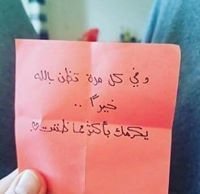 وفي كل مرة تظن بالله
خيراً ..
يكرمك بأكثر مما ظننت